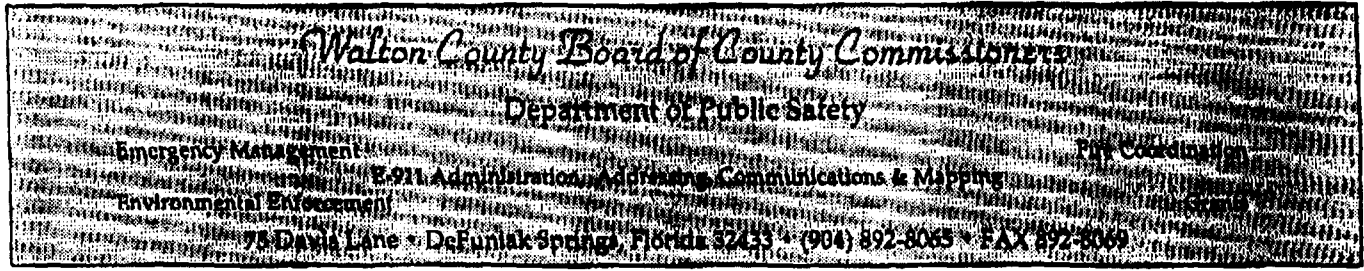 Walton County Board of County Commissioners
Department of Public Safety
Emergency Management
Fire Coordination
E-911 Administration, Addressing, Communications & Mapping
Environmental Enforcement
Grants
75 Davis Lane • DeFuniak Springs, Florida 32433 • (904) 892-8065 • FAX 892-8069